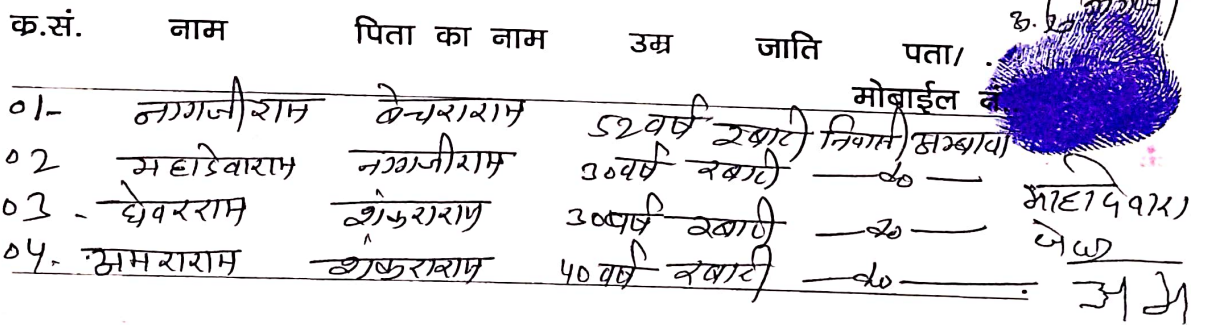 क्र.सं. नाम पिता का नाम उम्र जाति पता/
मोबाईल नं.
01- नागजीराम बेचराराम 52 वर्ष रबारी निवासी
02 महादेवाराम नागजीराम 30 वर्ष रबारी —do—
03 - घेवरराम शंकराराम 30 वर्ष रबारी —do—
04- अमराराम शंकराराम 40 वर्ष रबारी —do—
अ म